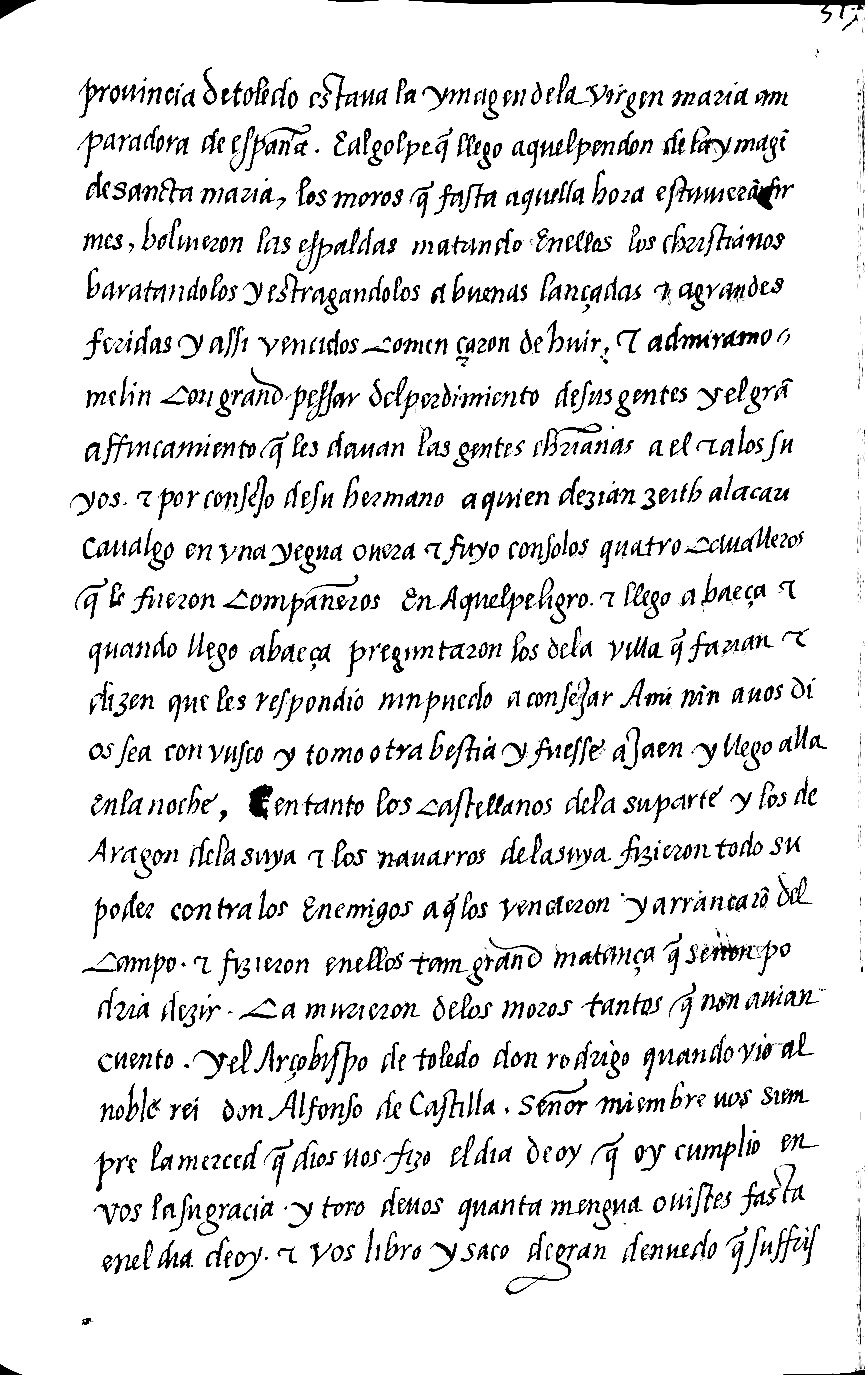 prouincia de toledo estaua la ymagen de la virgen maria am
paradora de españa. E al golpe q̃ llego aquel pendon de la ymagẽ
de sancta maria, los moros q̃ fasta aquella hora estuuierã fir
mes, boluieron las espaldas matando en ellos los christianos
baratandolos y estragandolos a buenas lançadas τ a grandes
feridas y assi vencidos comen çaron de huir, τ admiramo
melin con grand pessar del perdimiento de sus gentes y el grã
affincamiento q̃ les dauan las gentes chr̃ianas a el τ a los su
yos. τ por consejo de su hermano a quien dezian zeith alacau
caualgo en vna yegua ouera τ fuyo con solos quatro caualleros
q̃ le fueron compañeros en Aquel peligro. τ llego a baeça τ
quando llego abaeça preguntaron los dela villa q̃ farian τ
dizen que les respondio nin puedo aconsejar Ami nin auos di
os sea con vusco y tomo otra bestia y fuesse aJaen y llego alla
en la noche, E en tanto los castellanos dela su parte y los de
Aragon dela suya τ los nauarros dela suya fizieron todo su
poder contra los enemigos a q̃los vencieron y arrancarõ del
campo. τ fizieron en ellos tam grand matança q̃ se non po
dria dezir. Ca murieron delos moros tantos q̃ non auian
cuento. y el Arçobispo de toledo don rodrigo quando vio al
noble rei don Alfonso de Castilla. Señor miembre uos siem
pre la merced q̃ dios uos fizo el dia de oy q̃ oy cumplio en
vos la su gracia y toro deuos quanta mengua ouistes fasta
en el dia de oy. τ vos libro y saco de gran denuedo q̃ suffris